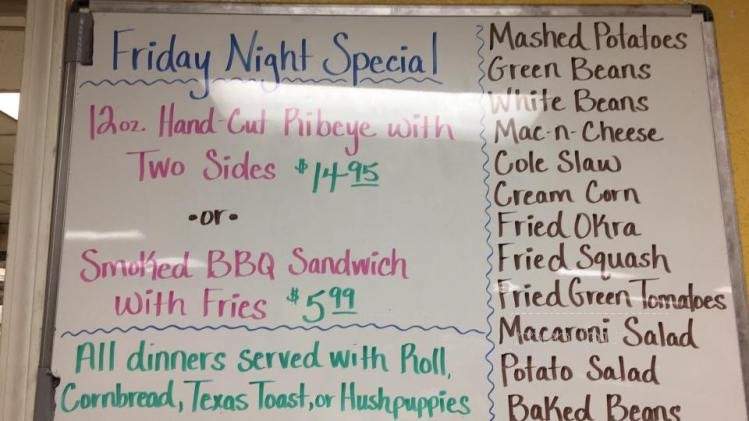 Friday Night Special
12oz. Hand-Cut Ribeye with
Two Sides $14.95
•or•
Smoked BBQ Sandwich
with Fries $5.99
All dinners served with Roll,
Cornbread, Texas Toast, or Hushpuppies
Mashed Potatoes
Green Beans
White Beans
Mac-n-Cheese
Cole Slaw
Cream Corn
Fried Okra
Fried Squash
Fried Green Tomatoes
Macaroni Salad
Potato Salad
Baked Beans